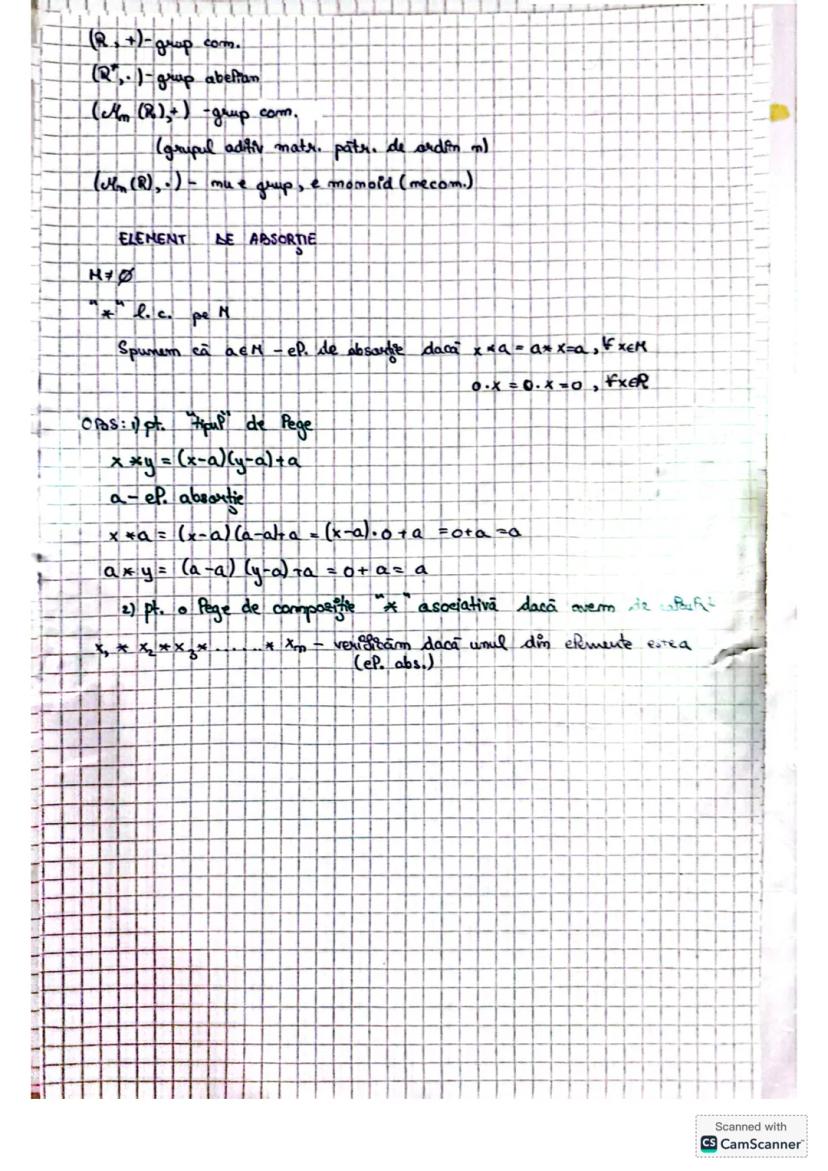 (R, +)-grup com.
(R*, ·)-grup abelian
(Mn (R),+) -grup com.
(grupul aditiv matr. pătr. de ordin n)
(Mn (R), ·) - nu e grup, e monoid (necom.)
ELEMENT DE ABSORȚIE
M≠∅
"*" l.c. pe M
Spunem că a∈M - el. de absorbție dacă x*a = a*x=a, ∀x∈M
0·x = 0·x=0, ∀x∈R
OBS: 1) pt. "tipul" de lege
x*y = (x-a)(y-a)+a
a- el. absorție
x*a = (x-a)(a-a)+a = (x-a)·0+a =0+a=a
a*y = (a-a)(y-a)+a = 0+a= a
2) pt. o lege de compoziție "*" asociativă dacă avem de
x₁ * x₂ * x₃ * ...... * xn - verificăm dacă unul din elemente
(el. abs.)
Scanned with
CS CamScanner